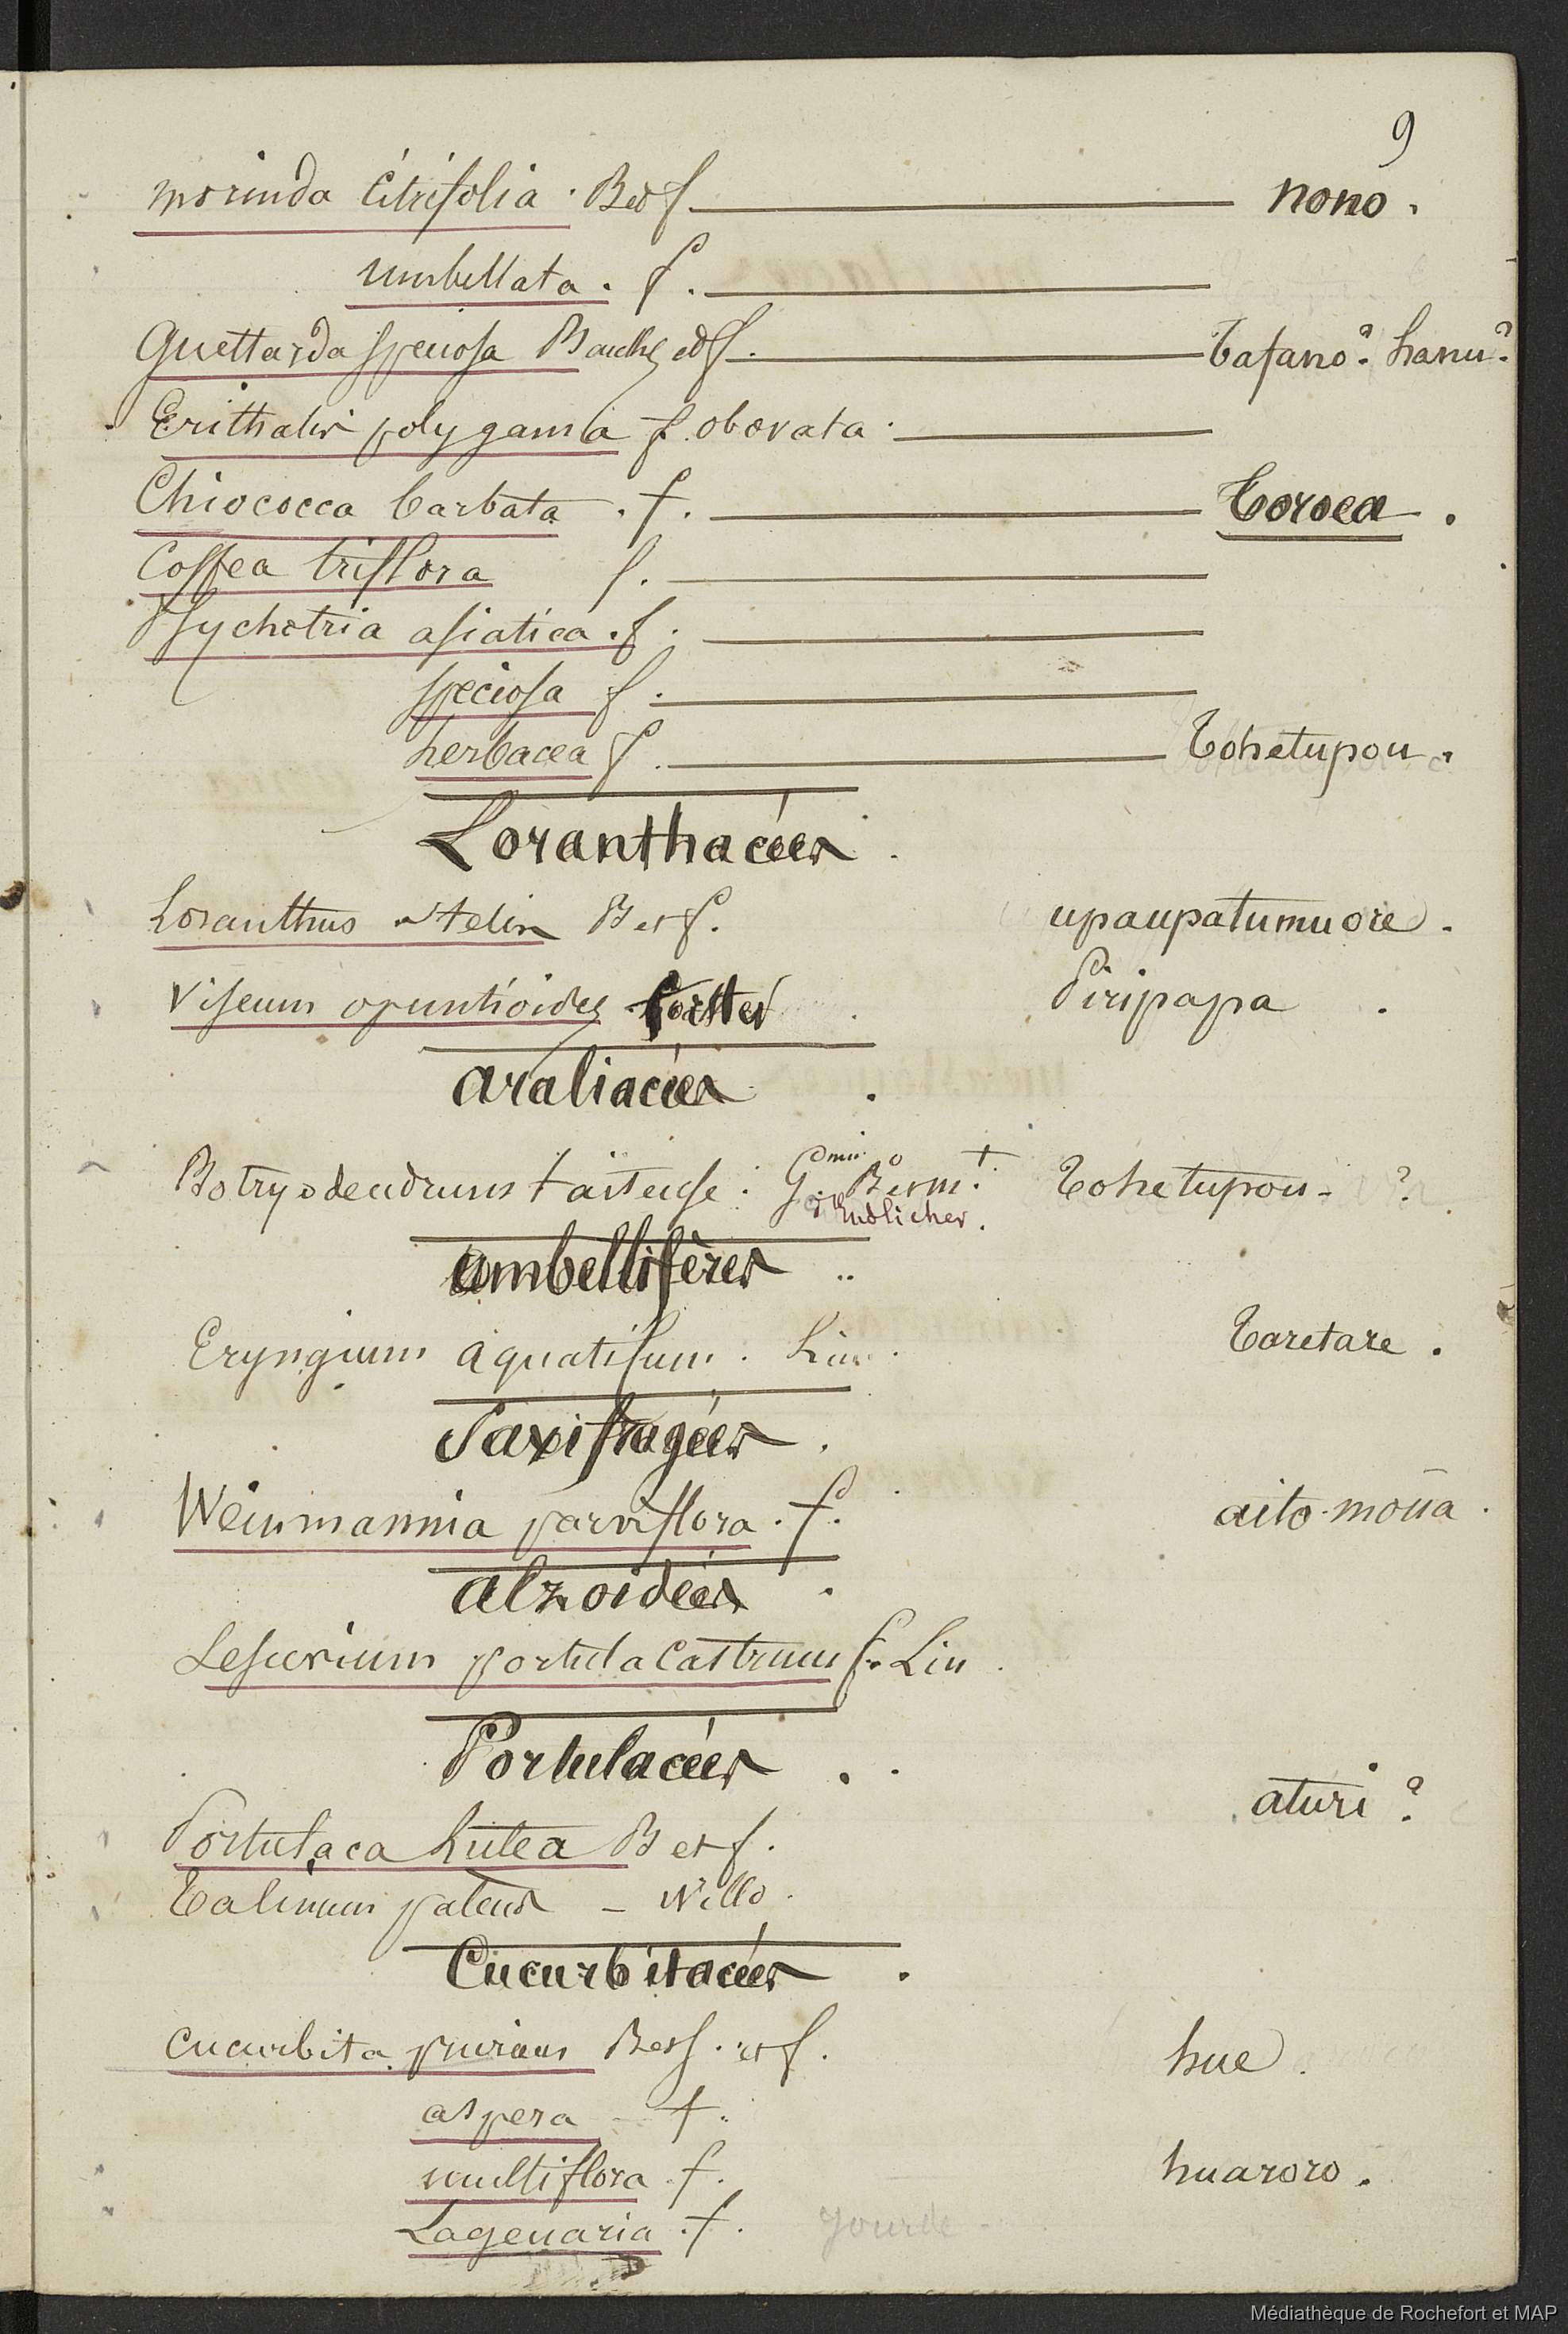 9
morinda Citrifolia . B et f. nono .
umbellata . f.
Guettarda speciosa Banks et f. Tafano ? hanu ?
Erithalis polygama f. obovata .
Chiococca barbata . f. Toroea .
Coffea triflora f.
Psychotria asiatica . f.
speciosa f.
herbacea f. Tohetupou .
Loranthacées .
Loranthus stelis B et f. upaupatumuore .
Viscum opuntioides forster Piripapa .
araliacées .
Botryodendrum taitense : G. Berm. Tohetupou - ?
Endlicher .
umbellifères ..
Eryngium aquaticum . Lin . Taretare .
Saxifragées .
Weinmannia parviflora . f. aito moua .
alzoidées .
Sesuvium portulacastrum f. Lin .
Portulacées .
aturi ?
Portulaca Lutea B et f .
Talinum patens - Willd .
Cucurbitacées .
Cucurbita pruriens et f. hue .
aspera - f.
multiflora . f. huaroro .
Lagenaria . f. gourde -
Médiathèque de Rochefort et MAP